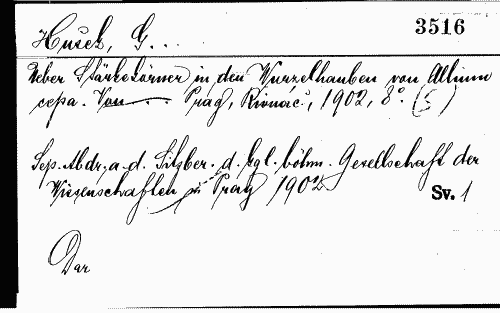 Hušek, G...
3516
Ueber Stärkekörner in den Wurzelhauben von Allium
cepa. Von — ... Prag, Rivnáč, 1902, 8°. (5)
Sep. Abdr. a. d. Sitzber. d. kgl. böhm. Gesellschaft der
Wissenschaften zu Prag 1902
Sv. 1
Dar